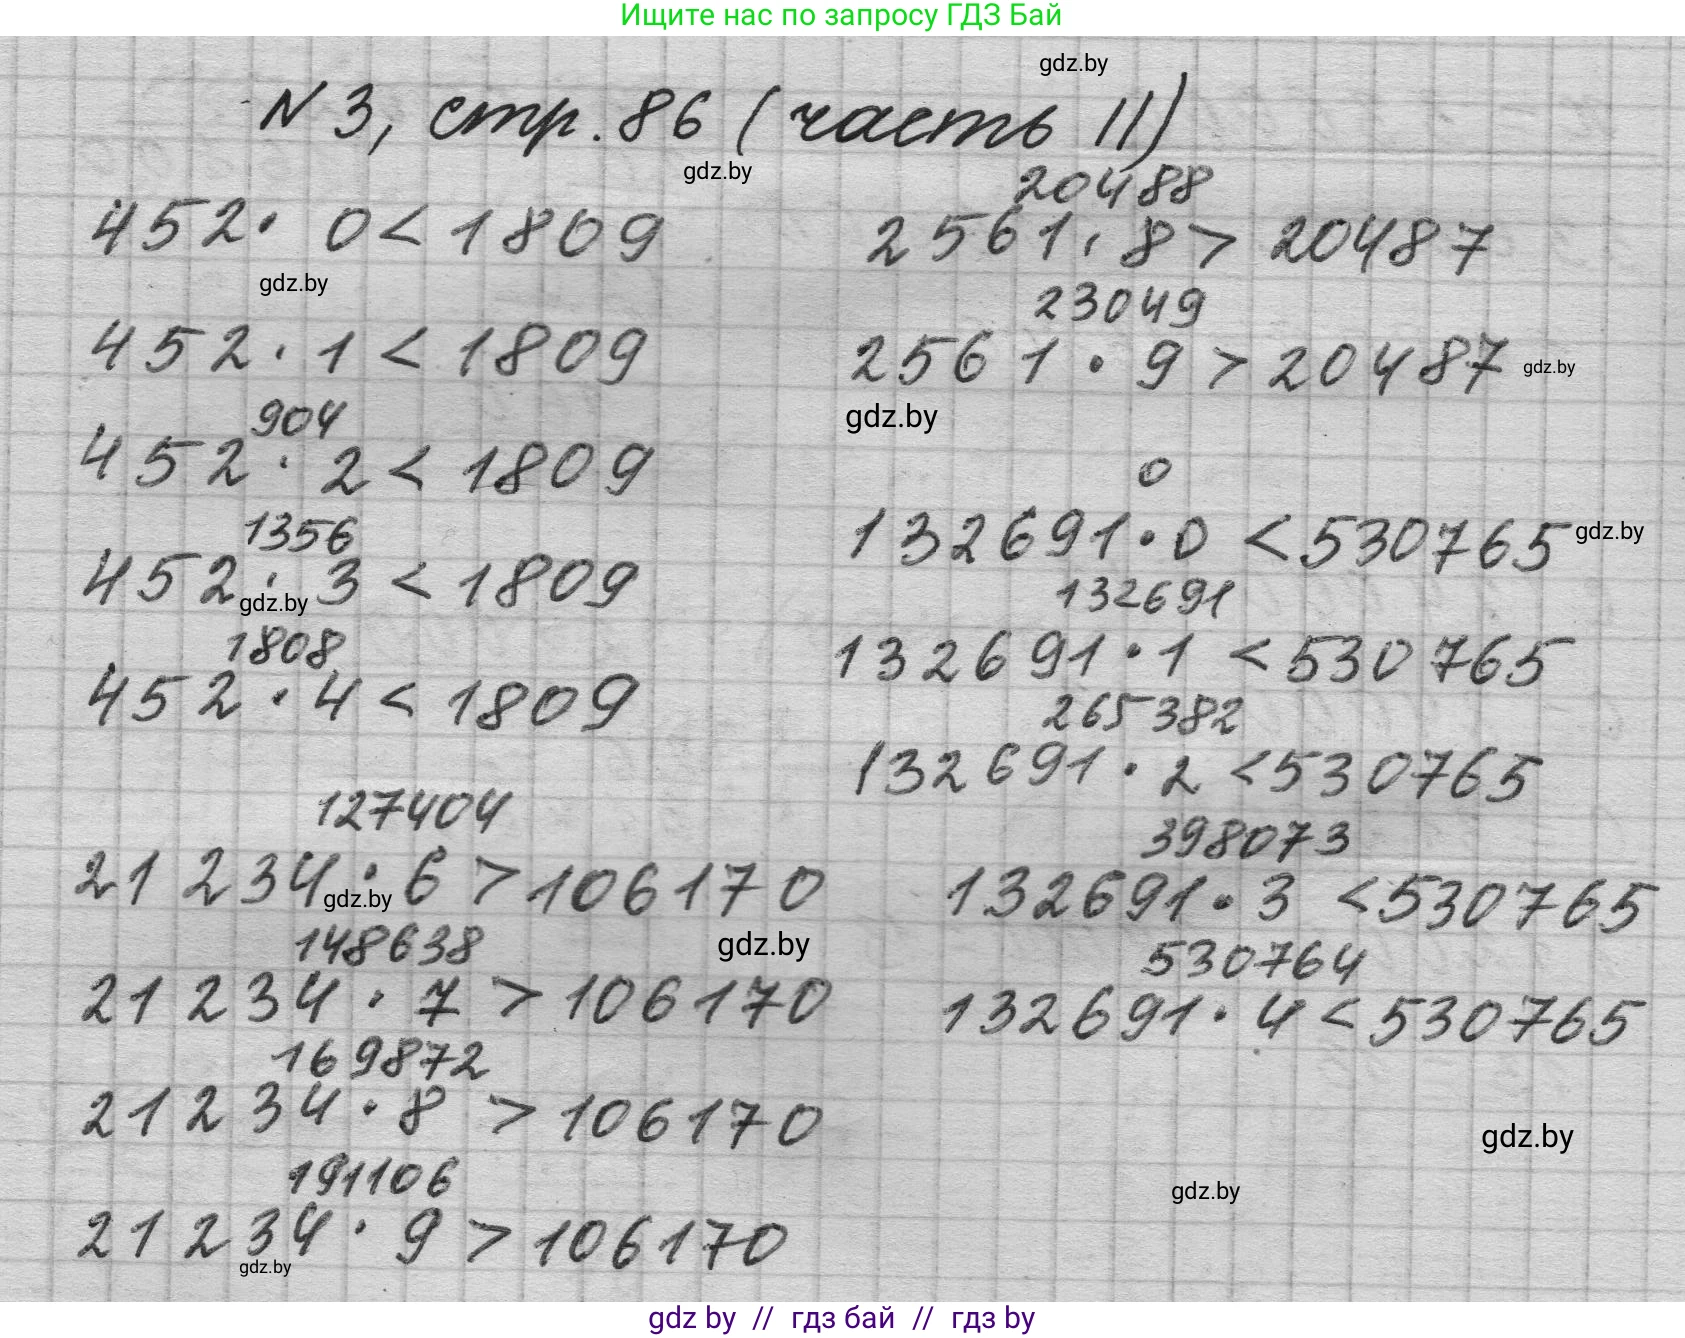 Ищите нас по запросу ГДЗ Бай
gdz.by
N 3, стр. 86 (часть II)
gdz.by
452 · 0 < 1809
gdz.by
452 · 1 < 1809
904
452 · 2 < 1809
1356
452 · 3 < 1809
gdz.by
1808
452 · 4 < 1809
127404
21 234 · 6 > 106170
gdz.by
148638
21 234 · 7 > 106170
169872
21 234 · 8 > 106170
191106
21 234 · 9 > 106170
gdz.by
20488
2561 · 8 > 20487
23049
2561 · 9 > 20487
gdz.by
gdz.by
0
132691 · 0 < 530765
gdz.by
132691
132691 · 1 < 530765
265382
132691 · 2 < 530765
398073
132691 · 3 < 530765
gdz.by
530764
132691 · 4 < 530765
gdz.by
gdz.by
gdz by // гдз бай // гдз by